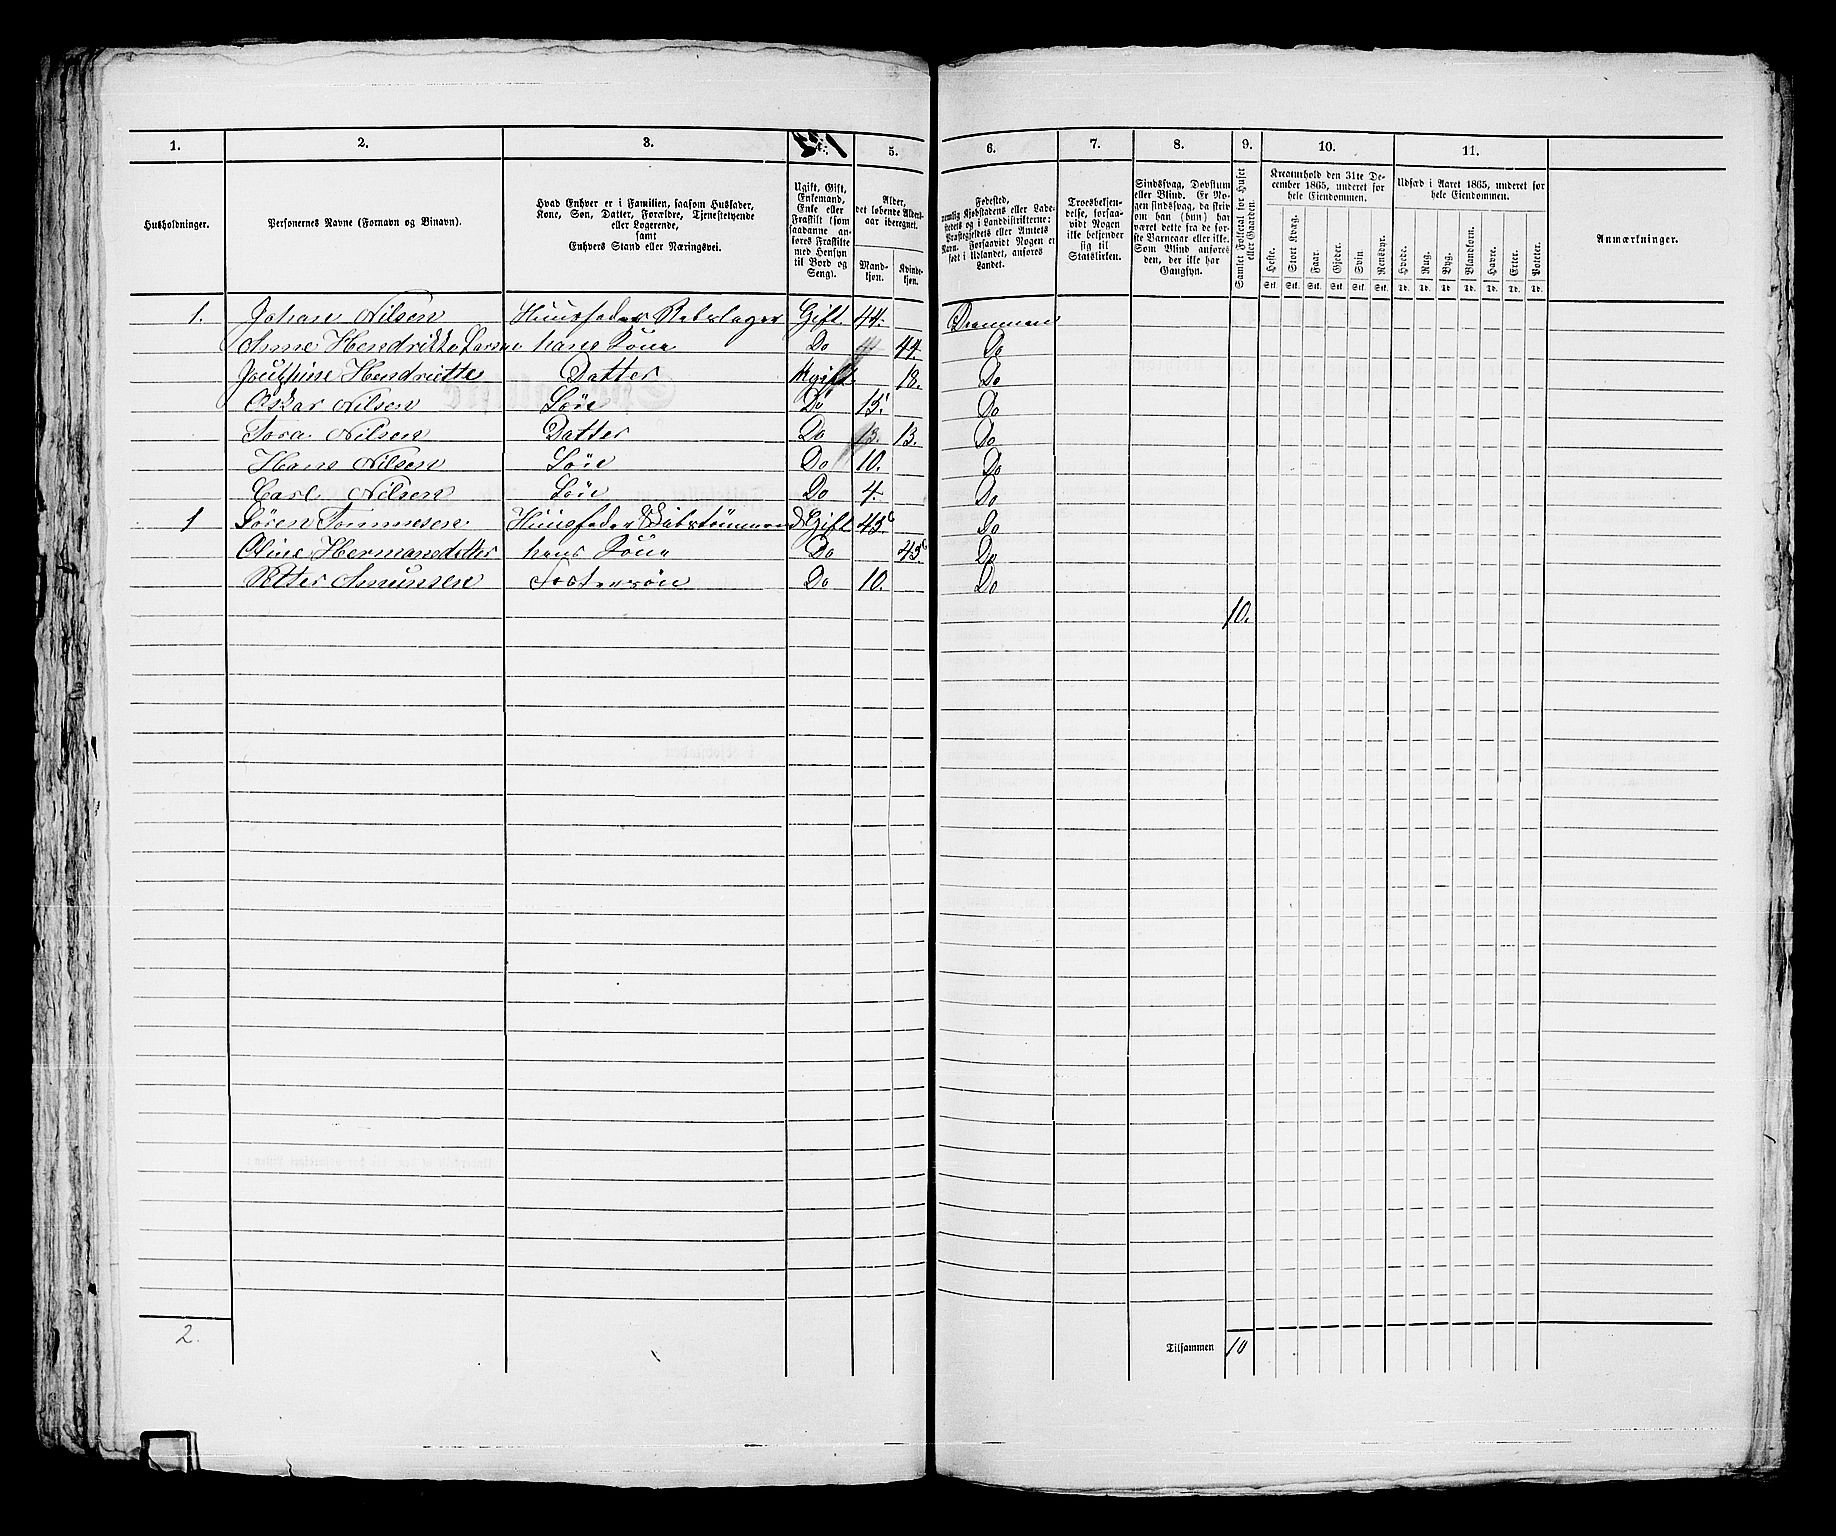 1. 2. 3. 5. 6. 7. 8. 9. 10. 11.
Husholdninger.
Personernes Navne (Fornavn og Binavn).
Hvad Enhver er i Familien, saasom Husfader,
Kone, Søn, Datter, Forældre, Tjenestetyende
eller Logerende,
samt
Enhvers Stand eller Næringsvei.
Ugift, Gift,
Enkemand,
Enke eller
Fraskilt (som
saadanne anføres
Fraskilte
med Hensyn
til Bord og
Seng).
Alder,
det løbende Aldersaar
iberegnet.
Mandkjøn.
Kvindekjøn.
Fødested,
nemlig Kjøbstadens eller Ladestedets
og i Landdistrikterne:
Præstegjeldets eller Amtets
Navn. Forsaavidt Nogen er
født i Udlandet, anføres
Landet.
Troesbekjendelse,
forsaavidt
Nogen
ikke bekjender
sig til
Statskirken.
Sindssvag, Døvstum
eller Blind. Er Nogen
sindssvag, da skriv
om han (hun) har
været dette fra de første
Barneaar eller ikke.
Som Blind anføres
den, der ikke har
Gangsyn.
Samlet Folketal for Huset
eller Gaarden.
Kreaturhold den 31te December
1865, underet for
hele Eiendommen.
Heste. Stort Kvæg. Faar. Gjeder. Svin Rensdyr.
Stk. Stk. Stk. Stk. Stk. Stk.
Udsæd i Aaret 1865, underet for
hele Eiendommen.
Hvede. Rug. Byg. Blandkorn. Havre. Erter. Poteter.
Td. Td. Td. Td. Td. Td. Td.
Anmærkninger.
1. Johan Nilsen Huusfader Rebslager Gift 44. Drammen
Anne Hendrikke hans Kone Do 44. Do
Josephine Hendriette Datter Ugift 18. Do
Oskar Nilsen Søn Do 15. Do
Tora Nilsen Datter Do 13. 13. Do
Hans Nilsen Søn Do 10. Do
Carl Nilsen Søn Do 4. Do
1 Sören Tommesen Huusfader Gift Do
Oline Hermansdatter hans Kone Do Do
Petter Amunsen Fostersøn Do 10. Do
10.
2.
Tilsammen 10